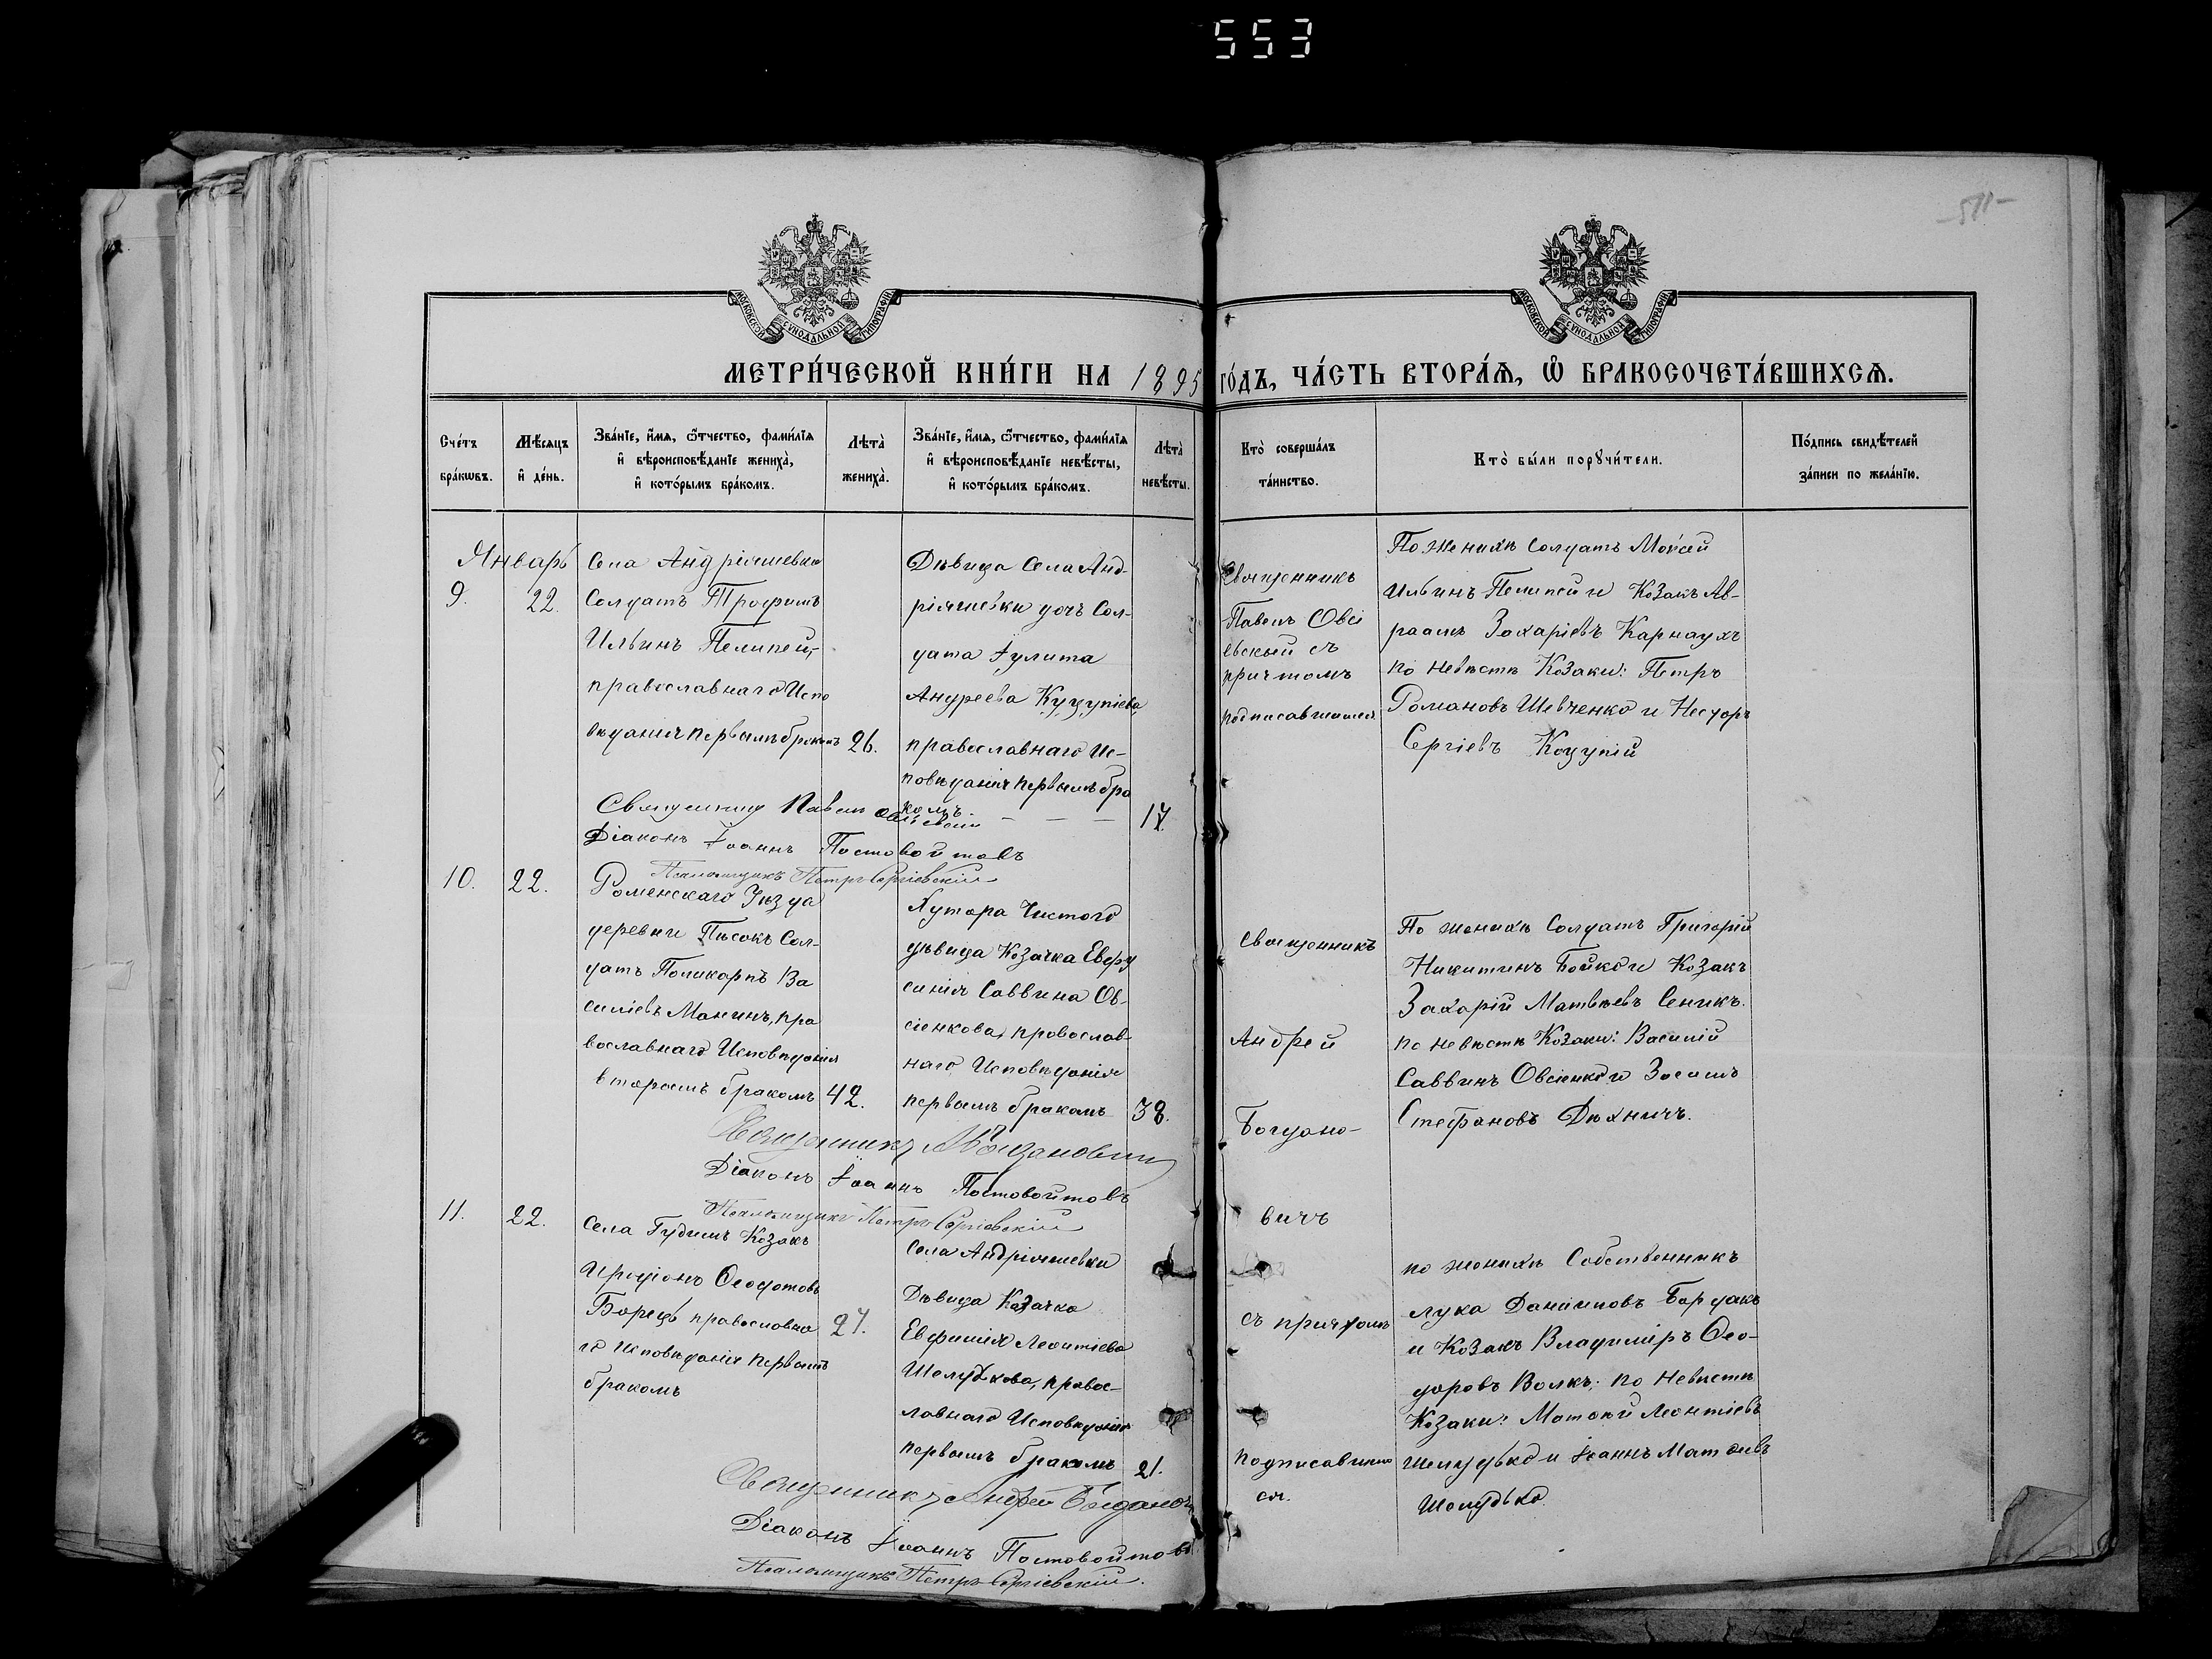 553
-511-
МОСКОВСКОЙ СѴНОДАЛЬНОЙ ТИПОГРАФІИ
МОСКОВСКОЙ СѴНОДАЛЬНОЙ ТИПОГРАФІИ
МЕТРИ́ЧЕСКОЙ КНИ́ГИ НА 1895 ГО́ДЪ, ЧА́СТЬ ВТОРА́Ѧ, Ѡ҆ БРАКОСОЧЕТА́ВШИХСѦ.
Сче́тъ
бра́кѡвъ.
Мѣ́сяцъ
и҆ де́нь.
Зва́нїе, и҆́мѧ, ѻ҆́тчество, фами́лїѧ
и҆ вѣроисповѣ́данїе жениха̀,
и҆ кото́рымъ бра́комъ.
Лѣта̀
жениха̀.
Зва́нїе, и҆́мѧ, ѻ҆́тчество, фами́лїѧ
и҆ вѣроисповѣ́данїе невѣ́сты,
и҆ кото́рымъ бра́комъ.
Лѣта̀
невѣ́сты.
Кто̀ соверша́лъ
та́инство.
Кто̀ бы́ли порꙋчи́тели.
По́дпись свидѣ́телей
за́писи по жела́нїю.
Январь
9.
22.
Села Андріяшевки
Солдатъ Трофимъ
Ильинъ Пелипей,
православнаго Испо
вѣданія первымъ бракомъ
26.
Дѣвица Села Анд-
ріяшевки дочь Сол-
дата Іулита
Андреева Куцупіева
православнаго Ис-
повѣданія первымъ бра
комъ
17.
Священникъ
Павелъ Овсі
евскый съ
причтомъ
подписавшимся
По женихѣ Солдатъ Моисей
Ильинъ Пелипей и Козакъ Ав-
раамъ Захаріевъ Карнаухъ
по невѣстѣ Козаки: Петръ
Романовъ Шевченко и Несторъ
Сергіевъ Коцупій
Священникъ Павелъ Овсіевскій
Діаконъ Іоаннъ Постовойтовъ
Псаломщикъ Петръ Сергіевскій
10.
22.
Роменскаго Уѣзда
деревни Пѣсокъ Сол-
датъ Поликарпъ Ва
силіевъ Манинъ, пра
вославнаго Исповѣданія
вторымъ бракомъ
42.
Хутора Чистого
дѣвица Козачка Евфро
синія Саввина Ов-
сіенкова, православ-
наго Исповѣданія
первымъ бракомъ
38.
Священникъ
Андрей
Богдано-
вичъ
съ причтомъ
подписавшим
ся.
По женихѣ Солдатъ Григорій
Никитинъ Бойко и Козакъ
Захарій Матвѣевъ Сеникъ.
по невѣстѣ Козаки: Василій
Саввинъ Овсіенко и Зосимъ
Стефановъ Дѣхничъ.
Священникъ А Богдановичъ
Діаконъ Іоаннъ Постовойтовъ
Псаломщикъ Петръ Сергіевскій
11.
22.
Села Гудимъ Козакъ
Иродіонъ Ѳеодотовъ
Борецъ православна
го Исповѣданія первымъ
бракомъ
27.
Села Андріяшевки
Дѣвица Козачка
Евфимія Леонтіева
Шелудкова, правос-
лавнаго Исповѣданія
первымъ бракомъ
21.
по женихѣ Собственникъ
Лука Даниловъ Бардакъ
и Козакъ Владиміръ Ѳео-
доровъ Волкъ; по невѣстѣ
Козаки: Матѳей Леонтіевъ
Шелудько и Іоаннъ Матѳеевъ
Шелудько.
Священникъ Андрей Богдановичъ
Діаконъ Іоаннъ Постовойтовъ
Псаломщикъ Петръ Сергіевскій.